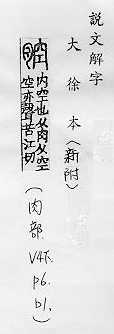 説文解字
大徐本(新附)
腔 内空也从肉从空
空亦聲苦江切
(肉部.V4下.p6.b1.)